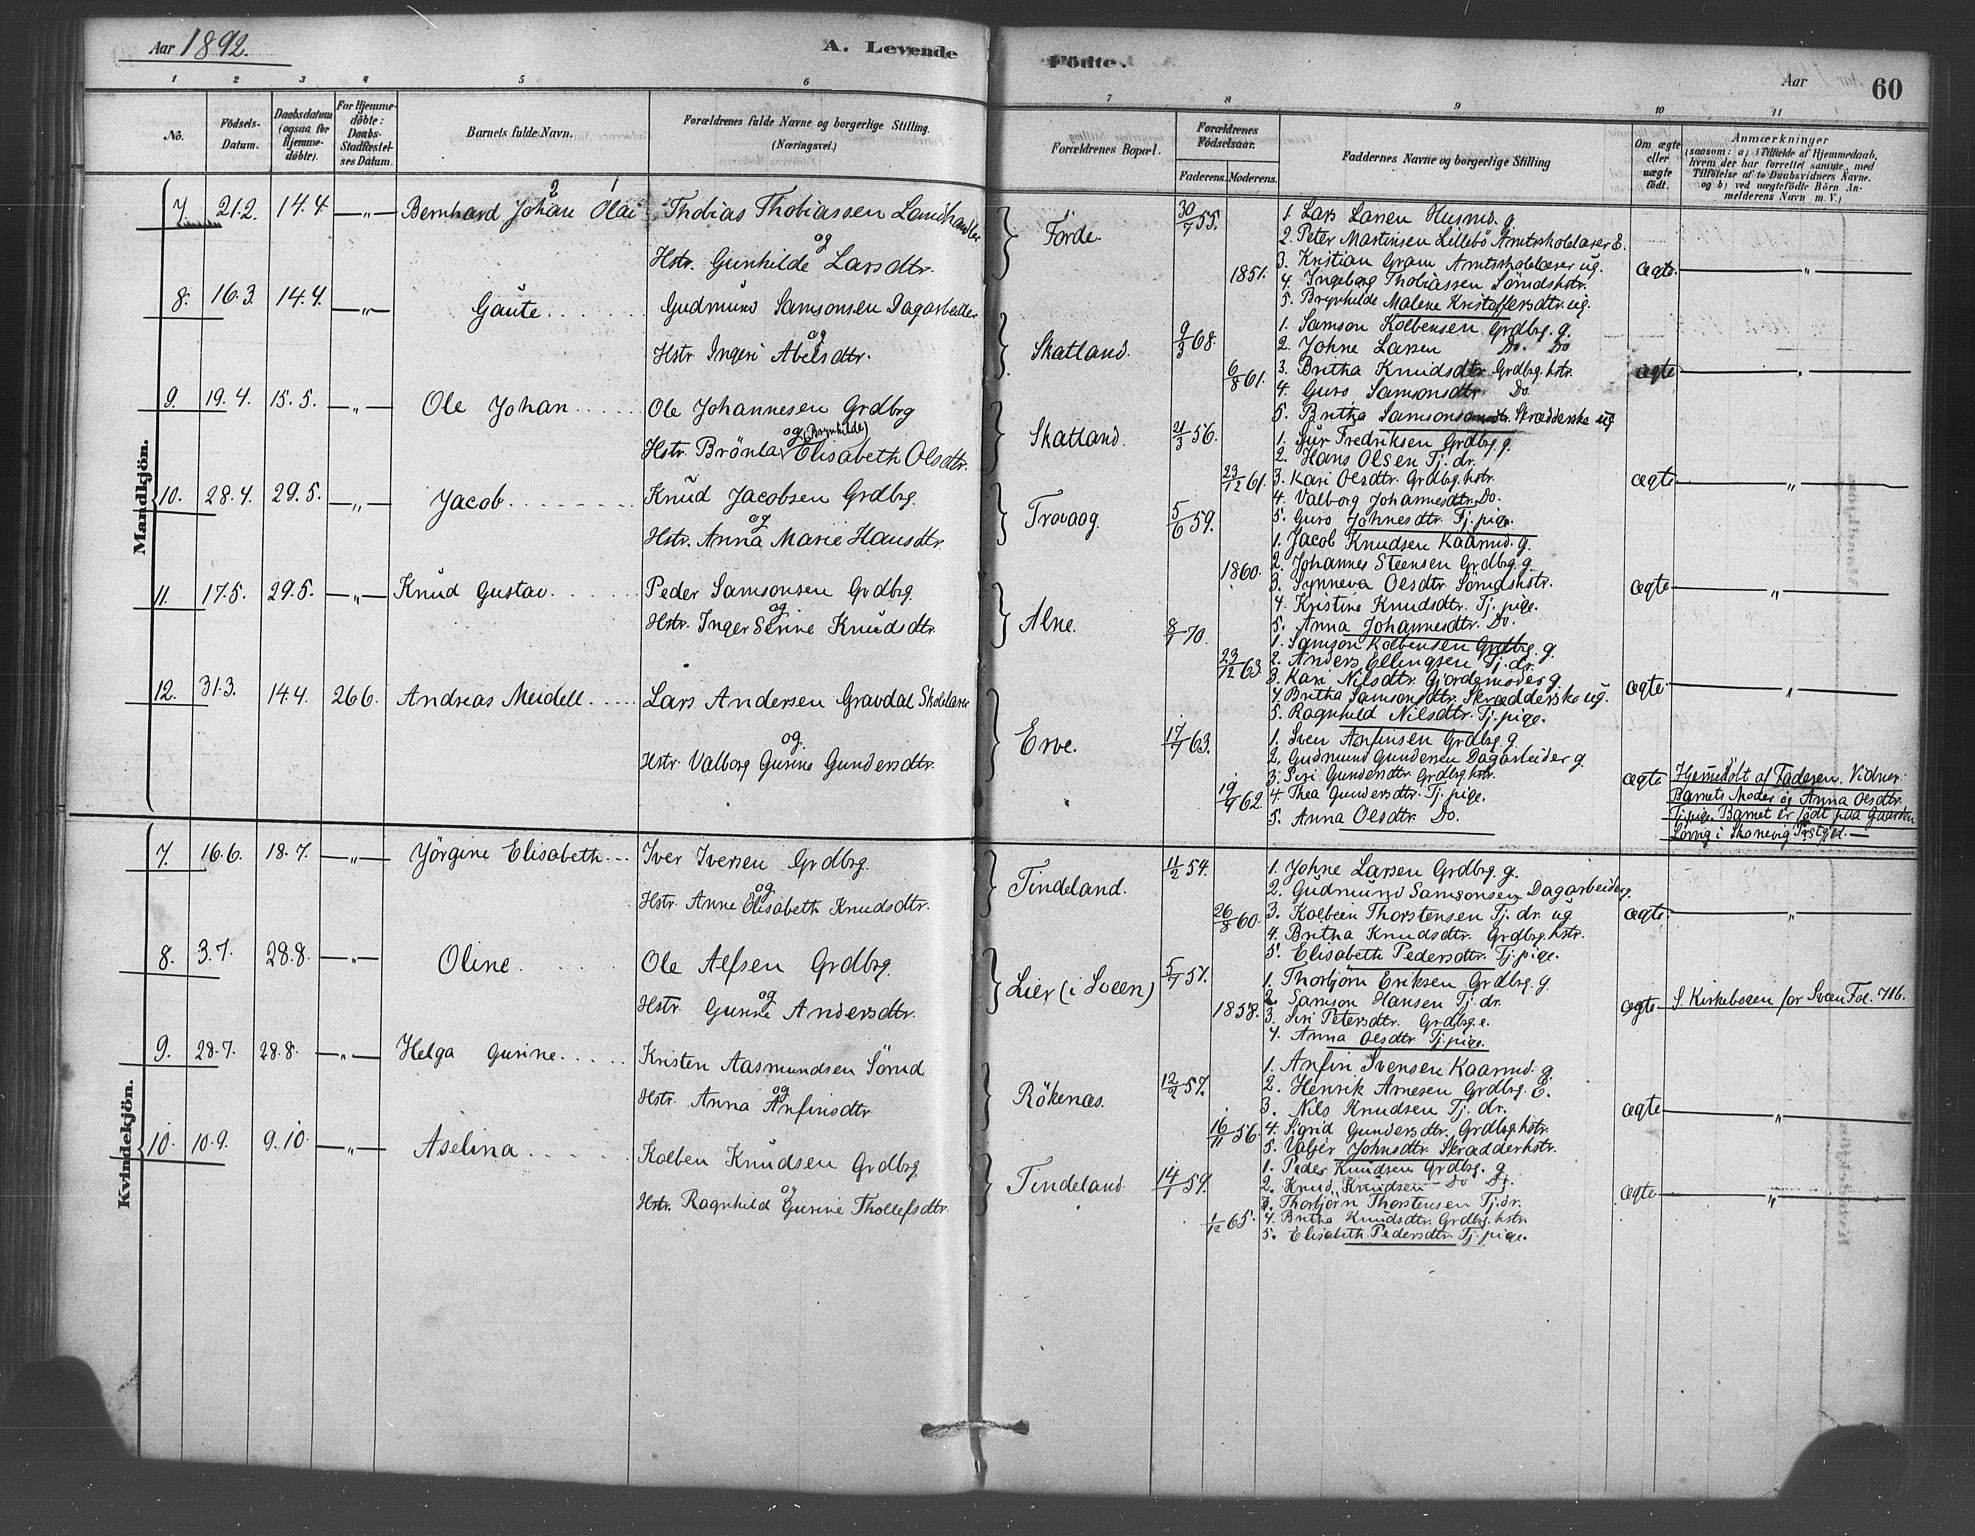 Aar 1892.
A. Levende
Födte.
Aar
60
1 2 3 4 5 6 7 8 9 10 11
No.
Födsels-Datum.
Daabsdatum (ogsaa for Hjemme-döbte).
For Hjemme-döbte: Daabs-Stadfæstel-ses Datum.
Barnets fulde Navn.
Forældrenes fulde Navne og borgerlige Stilling.
(Næringsvei.)
Forældrenes Bopæl.
Forældrenes Födselsaar.
Faderens. Moderens.
Faddernes Navne og borgerlige Stilling
Om ægte eller uægte födt.
Anmærkninger
(saasom: a) i Tilfælde af Hjemmedaab,
hvem der har forrettet samme, med
Tilföielse af to Daabsvidners Navne.
og b) ved uægtefödte Börn An-
melderens Navn m. V.)
Mandkjön.
7. 21.2. 14.4. —„— Bernhard Johan Olai
2 1
Thobias Thobiassen Landhandler
og
Hstr. Gunhilde Larsdtr.
Förde.
30/7 55.
1851.
1. Lars Larsen Husmd. g.
2. Peter Martinsen Lillebö Amtsskolelærer E.
3. Kristian Gram Amtsskolelærer ug.
4. Ingeborg Thobiassen Sömdshstr.
5. Brynhilde Malene Kristoffersdtr. ug.
ægte. —„—
8. 16.3. 14.4. —„— Gaute
Gudmund Samsonsen Dagarbeider
og
Hstr. Ingeri Abelsdtr.
Skatland.
9/3 68.
6/8 61.
1. Samson Kolbensen Grdbrg. g.
2. Johne Larsen Do. Do
3. Britha Knudsdtr. Grdbrg. hstr.
4. Guro Samsonsdtr Do.
5. Britha Samsonsdtr. Skrædderske ug
ægte —„—
9. 19.4. 15.5. —„— Ole Johan
Ole Johannesen Grdbrg
og (Brynhilde)
Hstr. Brönla Elisabeth Olsdtr.
Skatland.
21/3 56.
23/12 61.
1. Sjur Fredriksen Grdbrg. g.
2. Hans Olsen Tj. dr.
3. Kari Olsdtr. Grdbg. hstr.
4. Valborg Johannesdtr. Do.
5. Guro Johnesdtr. Tj. pige.
ægte —„—
10. 28.4. 29.5. —„— Jacob
Knud Jacobsen Grdbrg.
og
Hstr. Anna Marie Hansdtr.
Trovaag.
5/6 59.
1860.
1. Jacob Knudsen Kaarmd. g.
2. Johannes Steensen Grdbg. g.
3. Synneva Olsdtr. Sömdshstr.
4. Kristine Knudsdtr. Tj. pige.
5. Anna Johannesdtr. Do.
ægte —„—
11. 17.5. 29.5. —„— Knud Gustav
Peder Samsonsen Grdbrg.
og
Hstr. Inger Serine Knudsdtr.
Alne.
8/1 70.
23/12 63
1. Samson Kolbensen Grdbrg. g.
2. Anders Ellingsen Tj. dr.
3. Kari Nilsdtr. Gjordemoder g.
4. Britha Samsonsdtr. Skrædderske ug.
5. Ragnhild Nilsdtr. Tj. pige.
ægte —„—
12. 31.3. 14.4. 26.6. Andreas Meidell
Lars Andersen Gravdal Skolelærer
og.
Hstr. Valborg Gurine Gundersdtr.
Erve.
17/7 63.
19/9 62.
1. Sven Anfinsen Grdbg. g.
2. Gudmund Gundersen Dagarbeider g.
3. Siri Gundersdtr. Grdbg. hstr.
4. Thea Gundersdtr. Tj. pige.
5. Anna Olsdtr. Do.
ægte
Hjemmedöbt af Faderen. Vidner:
Barnets Moder og Anna Olsdtr.
Tj. pige. Barnet er födt paa Gaarden
i Skonevig Prstgjd. —
Kvindekjön.
7. 16.6. 18.7. —„— Jörgine Elisabeth
Iver Iversen Grdbrg.
og
Hstr. Anne Elisabeth Knudsdtr.
Tindeland.
11/2 54.
26/8 60.
1. Johne Larsen Grdbrg. g.
2. Gudmund Samsonsen Dagarbeider g.
3. Kolbein Thorstensen Tj. dr. ug
4. Britha Knudsdtr. Grdbrg. hstr.
5. Elisabeth Pedersdtr. Tj. pige.
ægte. —„—
8. 3.7. 28.8. —„— Oline.
Ole Alfsen Grdbrg.
og
Hstr. Gurine Andersdtr.
Lier (i Sveen)
5/7 51.
1858.
1. Thorbjörn Eriksen Grdbrg. g.
2. Samson Hansen Tj. dr.
3. Siri Petersdtr. Grdbrg. e.
4. Anna Olsdtr Tj. pige.
ægte S. Kirkebogen for Sveen Fol. 716.
9. 28.7. 28.8. —„— Helga Gurine
Kristen Aasmundsen Sömd
og
Hstr. Anna Anfinsdtr.
Rökenæs.
12/2 57.
16/11 56
1. Anfin Svensen Kaarmd. g
2. Henrik Arnesen Grdbrg. E.
3. Nils Knudsen Tj. dr.
4. Sigrid Gundersdtr. Grdbrg. hstr.
5. Valjer Johnsdtr. Skrædderhstr.
ægte —„—
10. 10.9. 9.10. —„— Aselina
Kolben Knudsen Grdbrg.
og
Hstr. Ragnhild Gurine Thollefsdtr.
Tindeland
14/1 59.
1/12 65.
1. Peder Knudsen Grdbrg. g
2. Knud Knudsen Do Do.
3. Thorbjörn Thorstensen Tj. dr.
4. Britha Knudsdtr. Grdbrg. hstr.
5. Elisabeth Pedersdtr. Tj. pige.
ægte —„—